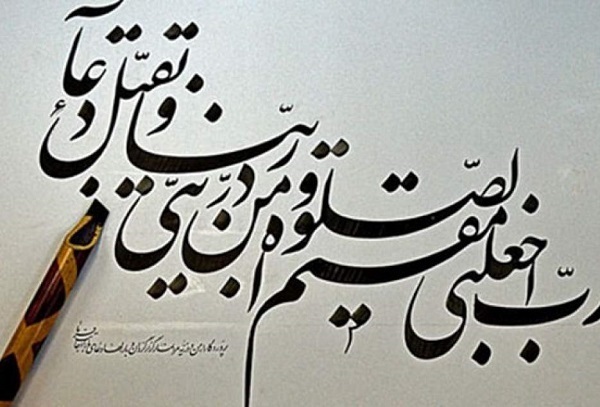 رب اجعلنی مقیم الصلوة و من ذریتی ربنا و تقبل دعاء